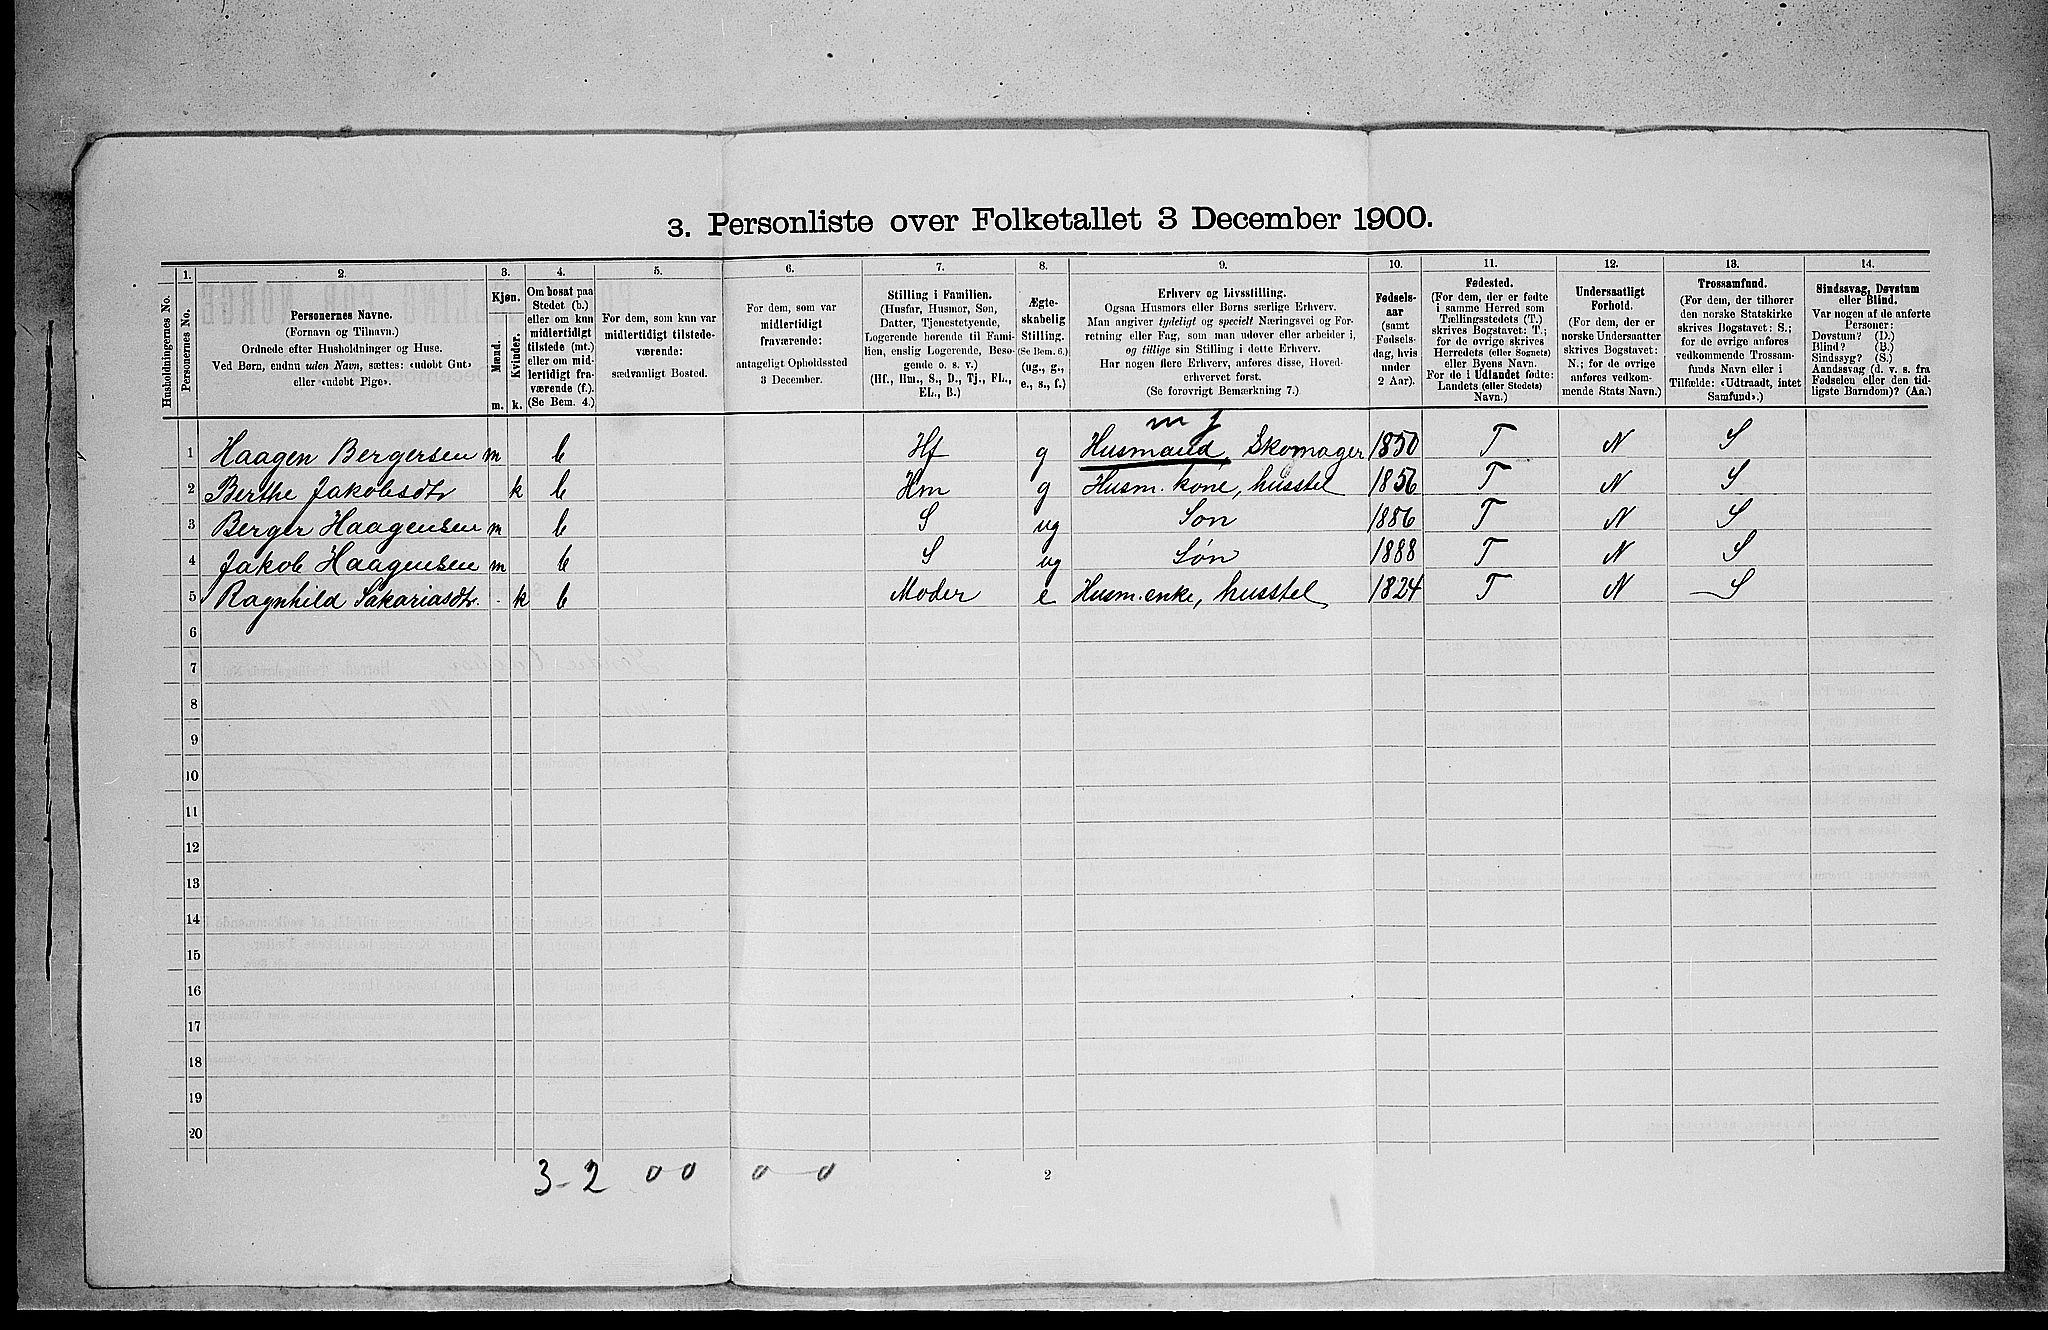 3. Personliste over Folketallet 3 December 1900.
Husholdningernes No.
1.
Personernes No.
2.
Personernes Navne.
(Fornavn og Tilnavn.)
Ordnede efter Husholdninger og Huse.
Ved Børn, endnu uden Navn, sættes: «udøbt Gut»
eller «udøbt Pige».
3.
Kjøn.
Mænd.
Kvinder.
m. k.
4.
Om bosat paa
Stedet (b.)
eller om kun
midlertidigt
tilstede (mt.)
eller om mid-
lertidigt fra-
værende (f.).
(Se Bem. 4.)
5.
For dem, som kun var
midlertidigt tilstede-
værende:
sædvanligt Bosted.
6.
For dem, som var
midlertidigt
fraværende:
antageligt Opholdssted
3 December.
7.
Stilling i Familien.
(Husfar, Husmor, Søn,
Datter, Tjenestetyende,
Logerende hørende til Fami-
lien, enslig Logerende, Besø-
gende o. s. v.)
(Hf., Hm., S., D., Tj., FL.,
EL., B.)
8.
Ægte-
skabelig
Stilling.
(Se Bem. 6.)
(ug., g.,
e., s., f.)
9.
Erhverv og Livsstilling.
Ogsaa Husmors eller Børns særlige Erhverv.
Man angiver tydeligt og specielt Næringsvei og For-
retning eller Fag, som man udøver eller arbeider i,
og tillige sin Stilling i dette Erhverv.
Har nogen flere Erhverv, anføres disse, Hoved-
erhvervet først.
(Se forøvrigt Bemærkning 7.)
10.
Fødsels-
aar
(samt
Fødsels-
dag, hvis
under
2 Aar).
11.
Fødested.
(For dem, der er fødte
i samme Herred som
Tællingsstedets (T.)
skrives Bogstavet: T.;
for de øvrige skrives
Herredets (eller Sognets)
eller Byens Navn.
For de i Udlandet fødte:
Landets (eller Stedets)
Navn.)
12.
Undersaatligt
Forhold.
(For dem, der er
norske Undersaatter
skrives Bogstavet:
N.; for de øvrige
anføres vedkom-
mende Stats Navn.)
13.
Trossamfund.
(For dem, der tilhører
den norske Statskirke
skrives Bogstavet: S.;
for de øvrige anføres
vedkommende Trossam-
funds Navn eller i
Tilfælde: «Udtraadt, intet
Samfund».)
14.
Sindssvag, Døvstum
eller Blind.
Var nogen af de anførte
Personer:
Døvstum? (D.)
Blind? (B.)
Sindssyg? (S.)
Aandssvag (d. v. s. fra
Fødselen eller den tid-
ligste Barndom)? (Aa.)
1 Haagen Bergersen m b Hf g Husmand, Skomager 1850 T N S
2 Berthe Jakobsdtr k b Hm g Husm. kone, husstel 1856 T N S
3 Berger Haagensen m b S ug Søn 1886 T N S
4 Jakob Haagensen m b S ug Søn 1888 T N S
5 Ragnhild Sakariasdtr. k b Moder e Husm. enke, husstel 1824 T N S
6
7
8
9
10
11
12
13
14
15
16
17
18
19
20
3-2 0 0 0-0
2